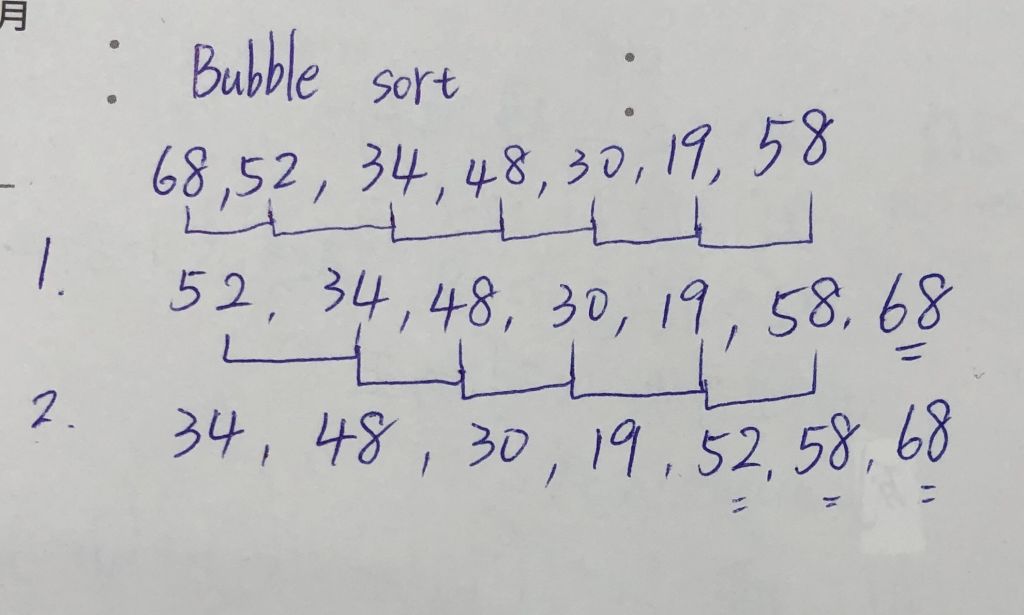 月
Bubble sort
68, 52, 34, 48, 30, 19, 58
1. 52, 34, 48, 30, 19, 58. 68
2. 34, 48, 30, 19, 52, 58, 68